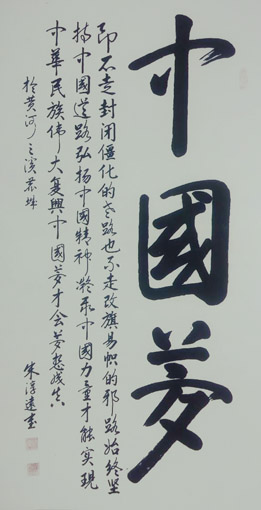 中國夢
即不走封闭僵化的老路也不走改旗易帜的邪路始终坚
持中國道路弘扬中國精神凝聚中國力量才能实現
中華民族伟大复興中國梦才会梦想成真
於黄河之滨
朱淳遠書